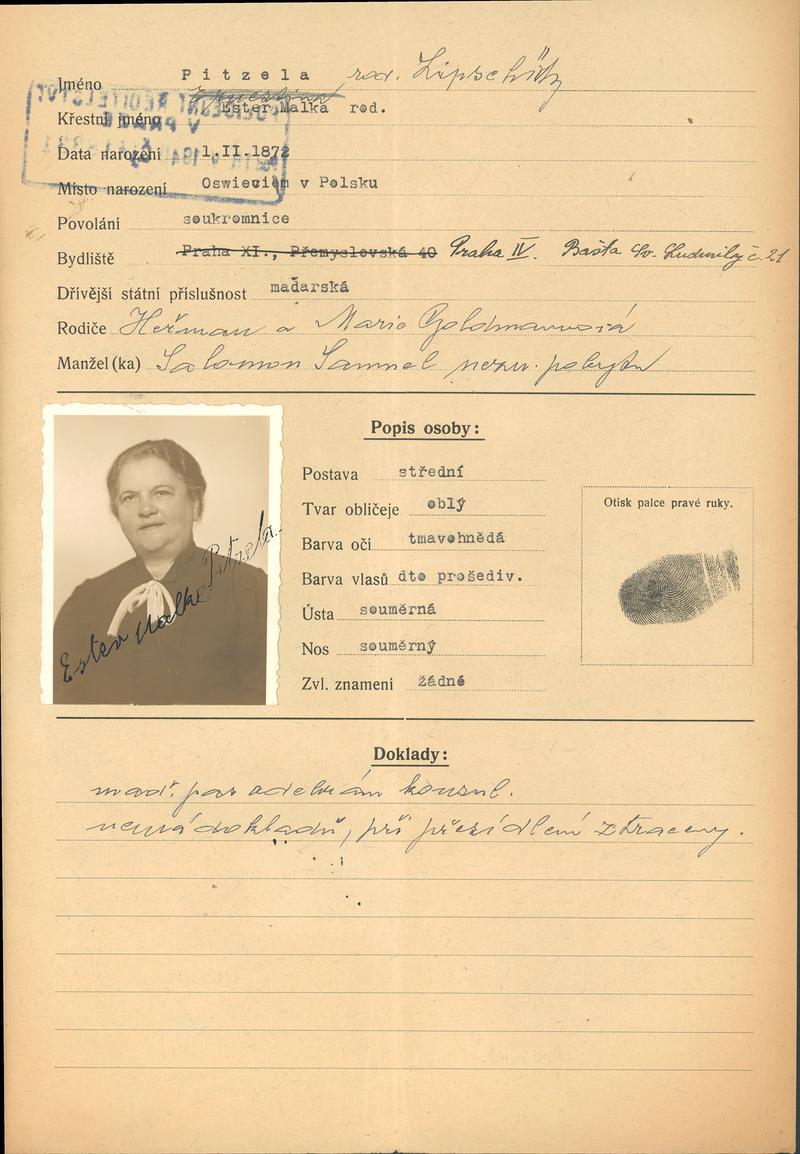 Jméno P i t z e l a rod. Lipschütz
Křestní jméno Ester Malka rod.
Data narození 1.II.1872
Místo narození Oswieciem v Polsku
Povolání soukromnice
Bydliště Praha XI., Přemyslovská 40 Praha IV. Bašta Sv. Ludmily č. 21
Dřívější státní příslušnost maďarská
Rodiče Heřman a Marie Goldmannová
Manžel(ka) Salomon Samuel nezn. pobytu
Popis osoby:
Postava střední
Tvar obličeje oblý
Barva očí tmavohnědá
Barva vlasů dto prošediv.
Ústa souměrná
Nos souměrný
Zvl. znamení žádné
Otisk palce pravé ruky.
Ester Malka Pitzela.
Doklady:
maď. pas odebrán konsul.
nemá dokladů, při přesídlení ztraceny.